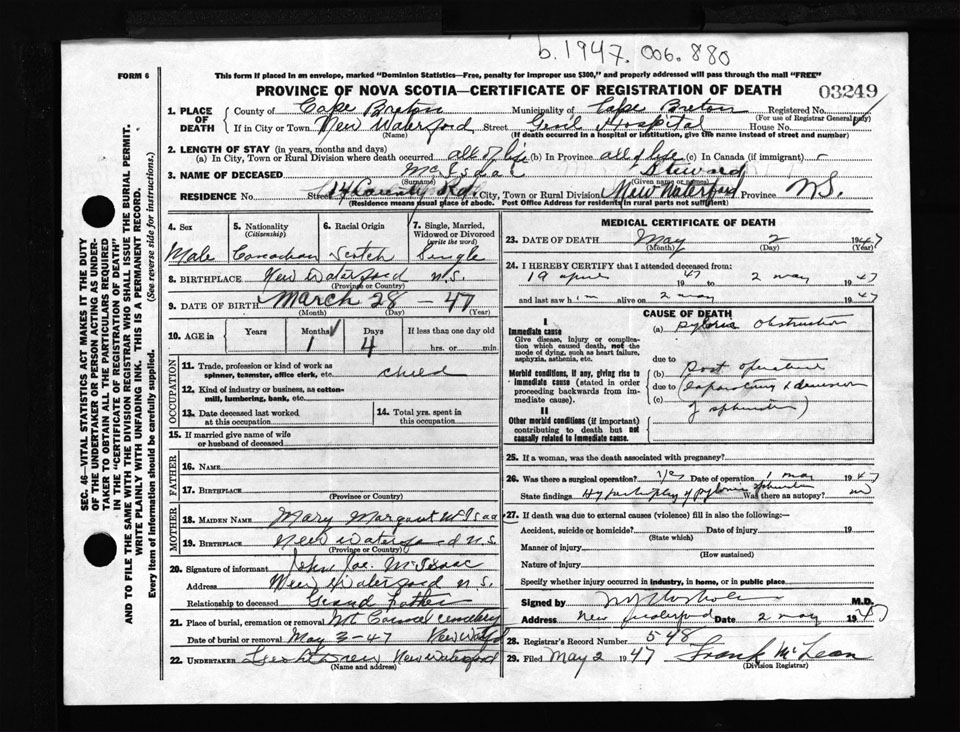 b. 1947. 006. 880
FORM 6
This form if placed in an envelope, marked "Dominion Statistics—Free, penalty for improper use $300," and properly addressed will pass through the mail "FREE"
PROVINCE OF NOVA SCOTIA—CERTIFICATE OF REGISTRATION OF DEATH 03249
1. PLACE OF DEATH County of Cape Breton Municipality of Cape Breton Registered No.
(For use of Registrar General only)
If in City or Town New Waterford Street Genl Hospital House No.
(Name) (If death occurred in a hospital or institution, give the name instead of street and number)
2. LENGTH OF STAY (in years, months and days)
(a) In City, Town or Rural Division where death occurred all of life (b) In Province all of life (c) In Canada (if immigrant) -
3. NAME OF DECEASED McIsaac Steward
(Surname) (Given name or names)
RESIDENCE No. Street 14 Rd. City, Town or Rural Division New Waterford Province N.S.
(Residence means usual place of abode. Post Office Address for residents in rural parts not sufficient)
4. Sex 5. Nationality (Citizenship) 6. Racial Origin 7. Single, Married, Widowed or Divorced (write the word)
Male Canadian Scotch Single
8. BIRTHPLACE New Waterford N.S.
(Province or Country)
9. DATE OF BIRTH March 28 - 47
(Month) (Day) (Year)
10. AGE in Years Months Days If less than one day old
1 4 hrs. or min.
OCCUPATION
11. Trade, profession or kind of work as spinner, teamster, office clerk, etc. child
12. Kind of industry or business, as cotton-mill, lumbering, bank, etc.
13. Date deceased last worked at this occupation
14. Total yrs. spent in this occupation
15. If married give name of wife or husband of deceased
FATHER
16. Name
17. BIRTHPLACE
(Province or Country)
MOTHER
18. MAIDEN NAME Mary Margaret McIsaac
19. BIRTHPLACE New Waterford N.S.
(Province or Country)
20. Signature of informant John Jac. McIsaac
Address New Waterford N.S.
Relationship to deceased Grand Father
21. Place of burial, cremation or removal Mt Carmel cemetery
Date of burial or removal May 3-47 New Watfd
22. UNDERTAKER New Waterford
(Name and address)
MEDICAL CERTIFICATE OF DEATH
23. DATE OF DEATH May 2 1947
(Month) (Day)
24. I HEREBY CERTIFY that I attended deceased from:
19 April 1947 to 2 May 1947
and last saw him alive on 2 May 1947
CAUSE OF DEATH
I
Immediate cause (a) Pyloric Obstruction
Give disease, injury or complication which caused death, not the mode of dying, such as heart failure, asphyxia, asthenia, etc.
due to
Morbid conditions, if any, giving rise to immediate cause (stated in order proceeding backwards from immediate cause).
(b) Post operative
due to
(c) of sphincter)
II
Other morbid conditions (if important) contributing to death but not causally related to immediate cause.
25. If a woman, was the death associated with pregnancy?
26. Was there a surgical operation? Yes Date of operation 1 May 1947
State findings of pyloric sphincter Was there an autopsy? no
27. If death was due to external causes (violence) fill in also the following:—
Accident, suicide or homicide? Date of injury 19
(State which)
Manner of injury
(How sustained)
Nature of injury
Specify whether injury occurred in industry, in home, or in public place
Signed by M.D.
Address New Waterford Date 2 May 1947
28. Registrar's Record Number 548
29. Filed May 2 1947 Frank McLean
(Division Registrar)
SEC. 46—VITAL STATISTICS ACT MAKES IT THE DUTY
OF THE UNDERTAKER OR PERSON ACTING AS UNDER-
TAKER TO OBTAIN ALL THE PARTICULARS REQUIRED
IN THE "CERTIFICATE OF REGISTRATION OF DEATH"
AND TO FILE THE SAME WITH THE DIVISION REGISTRAR WHO SHALL ISSUE THE BURIAL PERMIT.
WRITE PLAINLY WITH UNFADING INK. THIS IS A PERMANENT RECORD.
Every item of information should be carefully supplied. (See reverse side for instructions.)